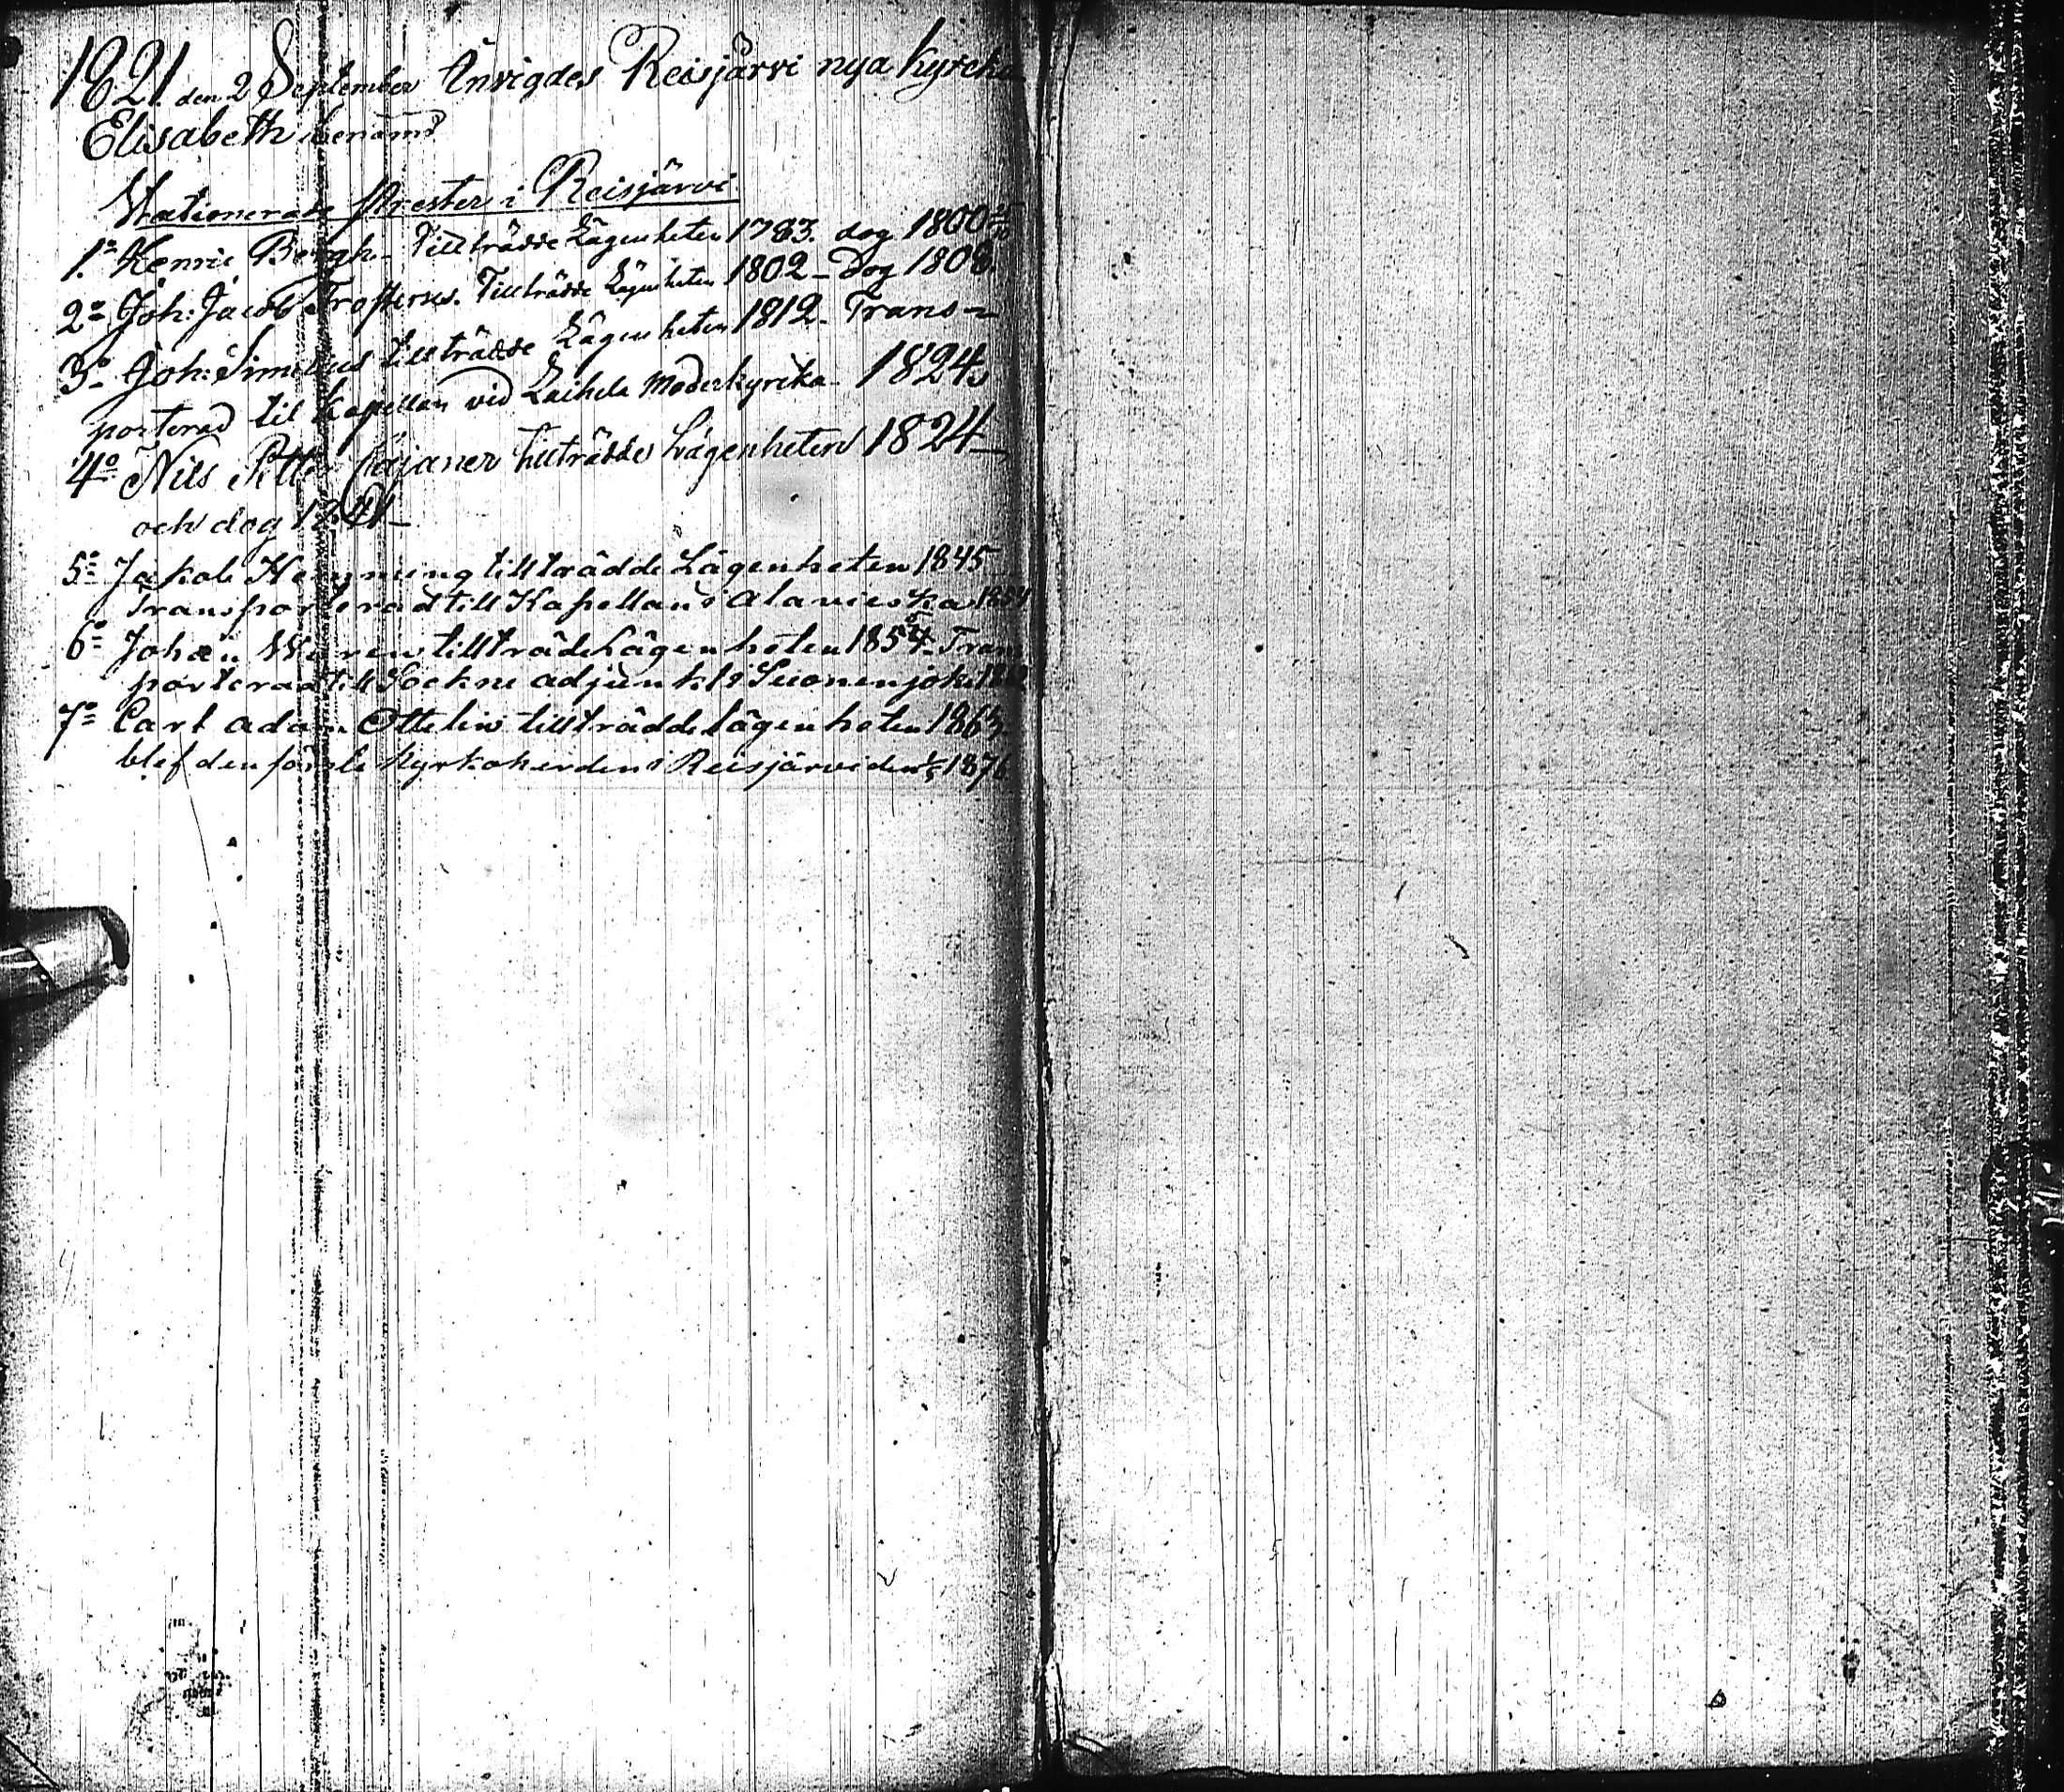 1821. den 2 September Invigdes Reisjärvi nya kyrcka
Elisabeth benämd
Stationerade Prester i Reisjärvi
1º Henric Bergh. Tillträdde Lägenheten 1783. dog 1800
2º Joh: Jacob Tillträdde Lägenheten 1802 – Dog 1808.
3º Joh: Simelius tillträdde Lägenheten 1812 – Trans-
porterad til Kapellan vid Laihela Moderkyrcka – 1824
4º Nils Petter Cajaner tillträdde Lägenheten 1824 –
och dog –
5º Jakob Hemming tillträdde Lägenheten 1845
Transporterad till Kapellan i Alavieska
6º Johan tillträde Lägenheten 1854 – Trans
porterad till Sockne adjunkt i Suonenjoki
7º Carl Adam Ottelin tillträdde lägenheten 1863.
blef den förste Kyrkoherden i Reisjärvi den 1876